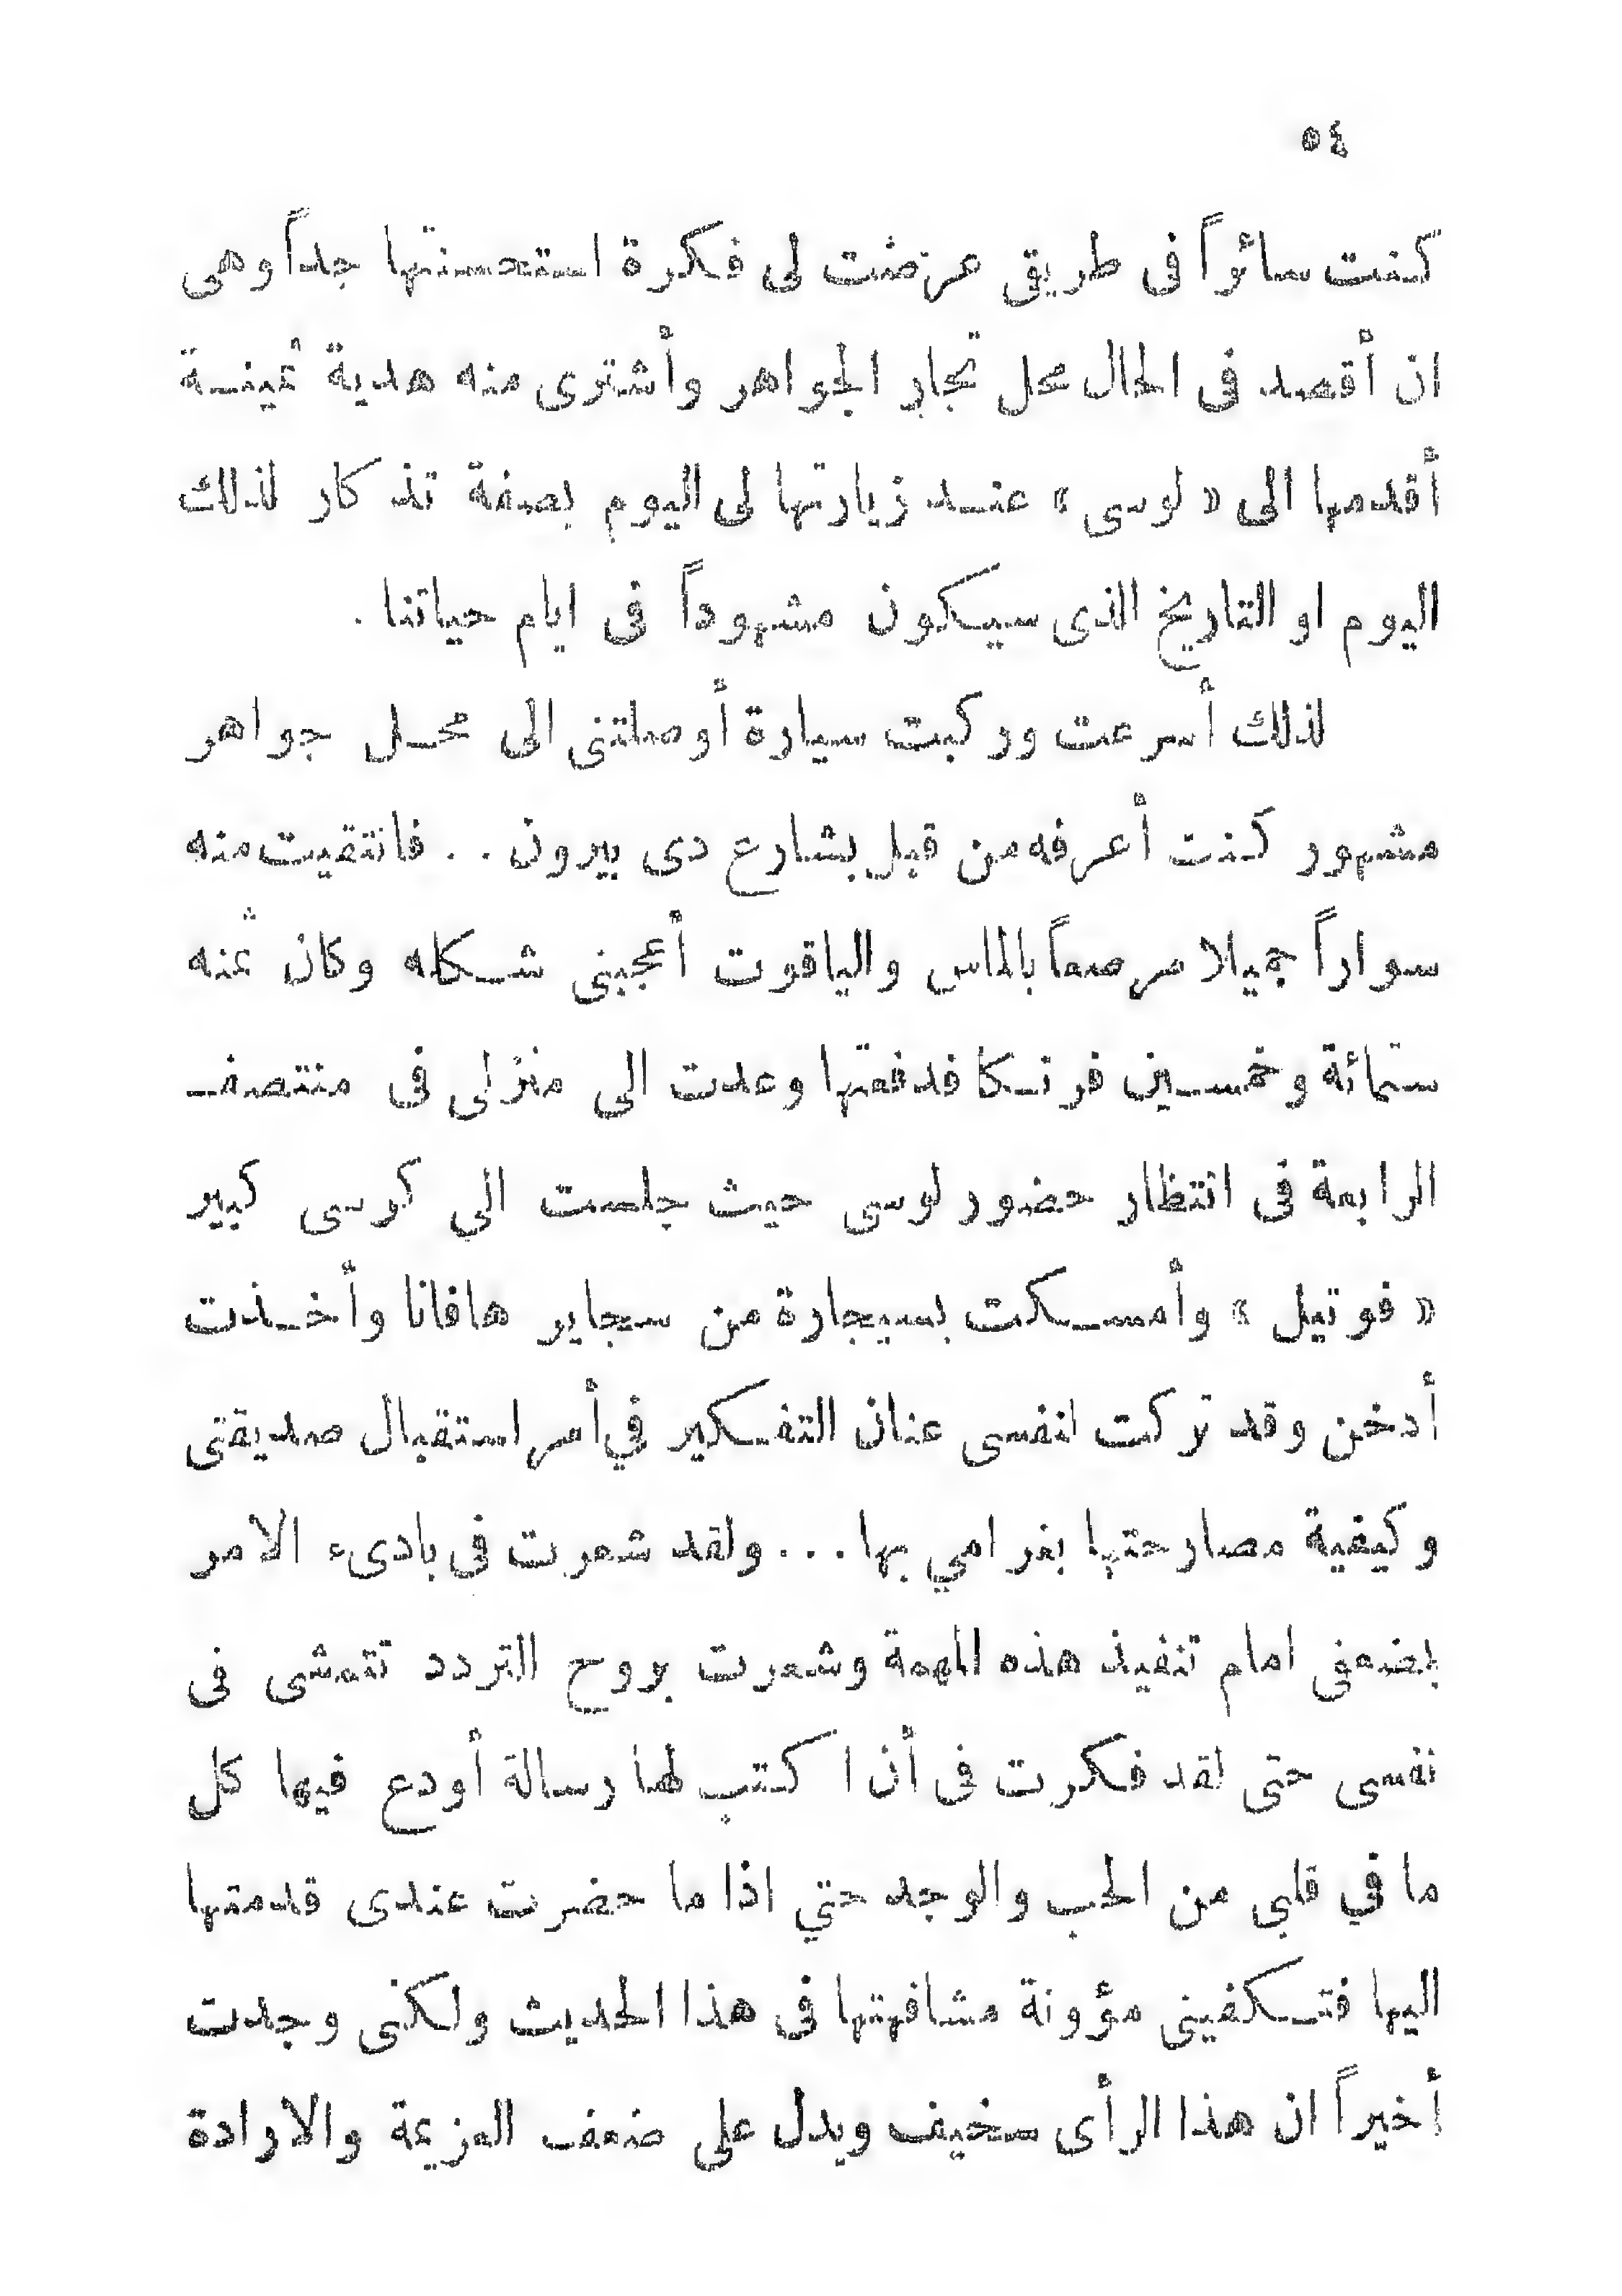 ٥٤
كنت سائراً فى طريقى عرضت لى فكرة استحسنتها جداً وهى
ان أقصد فى الحال محل تجار الجواهر وأشترى منه هدية ثمينة
أقدمها الى « لوسى » عند زيارتها لى اليوم بصفة تذكار لذلك
اليوم او التاريخ الذى سيكون مشهوداً فى ايام حياتنا .
لذلك أسرعت وركبت سيارة أوصلتنى الى محل جواهر
مشهور كنت أعرفه من قبل بشارع دى بيرون . . فانتقيت منه
سواراً جميلا مرصعاً بالماس والياقوت أعجبنى شكله وكان ثمنه
ستمائة وخمسين فرنكا فدفعتها وعدت الى منزلى فى منتصف
الرابعة فى انتظار حضور لوسى حيث جلست الي كرسى كبير
« فوتيل » وأمسكت بسيجارة من سجاير هافانا وأخذت
أدخن وقد تركت لنفسى عنان التفكير في أمر استقبال صديقتى
وكيفية مصارحتها بغرامي بها . . . ولقد شعرت فى بادىء الامر
بضعفى امام تنفيذ هذه المهمة وشعرت بروح التردد تتمشى فى
نفسى حتى لقد فكرت فى أن اكتب لها رسالة أودع فيها كل
ما في قلبى من الحب والوجد حتي اذا ما حضرت عندى قدمتها
اليها فتكفينى مؤونة مشافهتها فى هذا الحديث ولكنى وجدت
أخيراً ان هذا الرأى سخيف ويدل على ضعف العزيمة والارادة